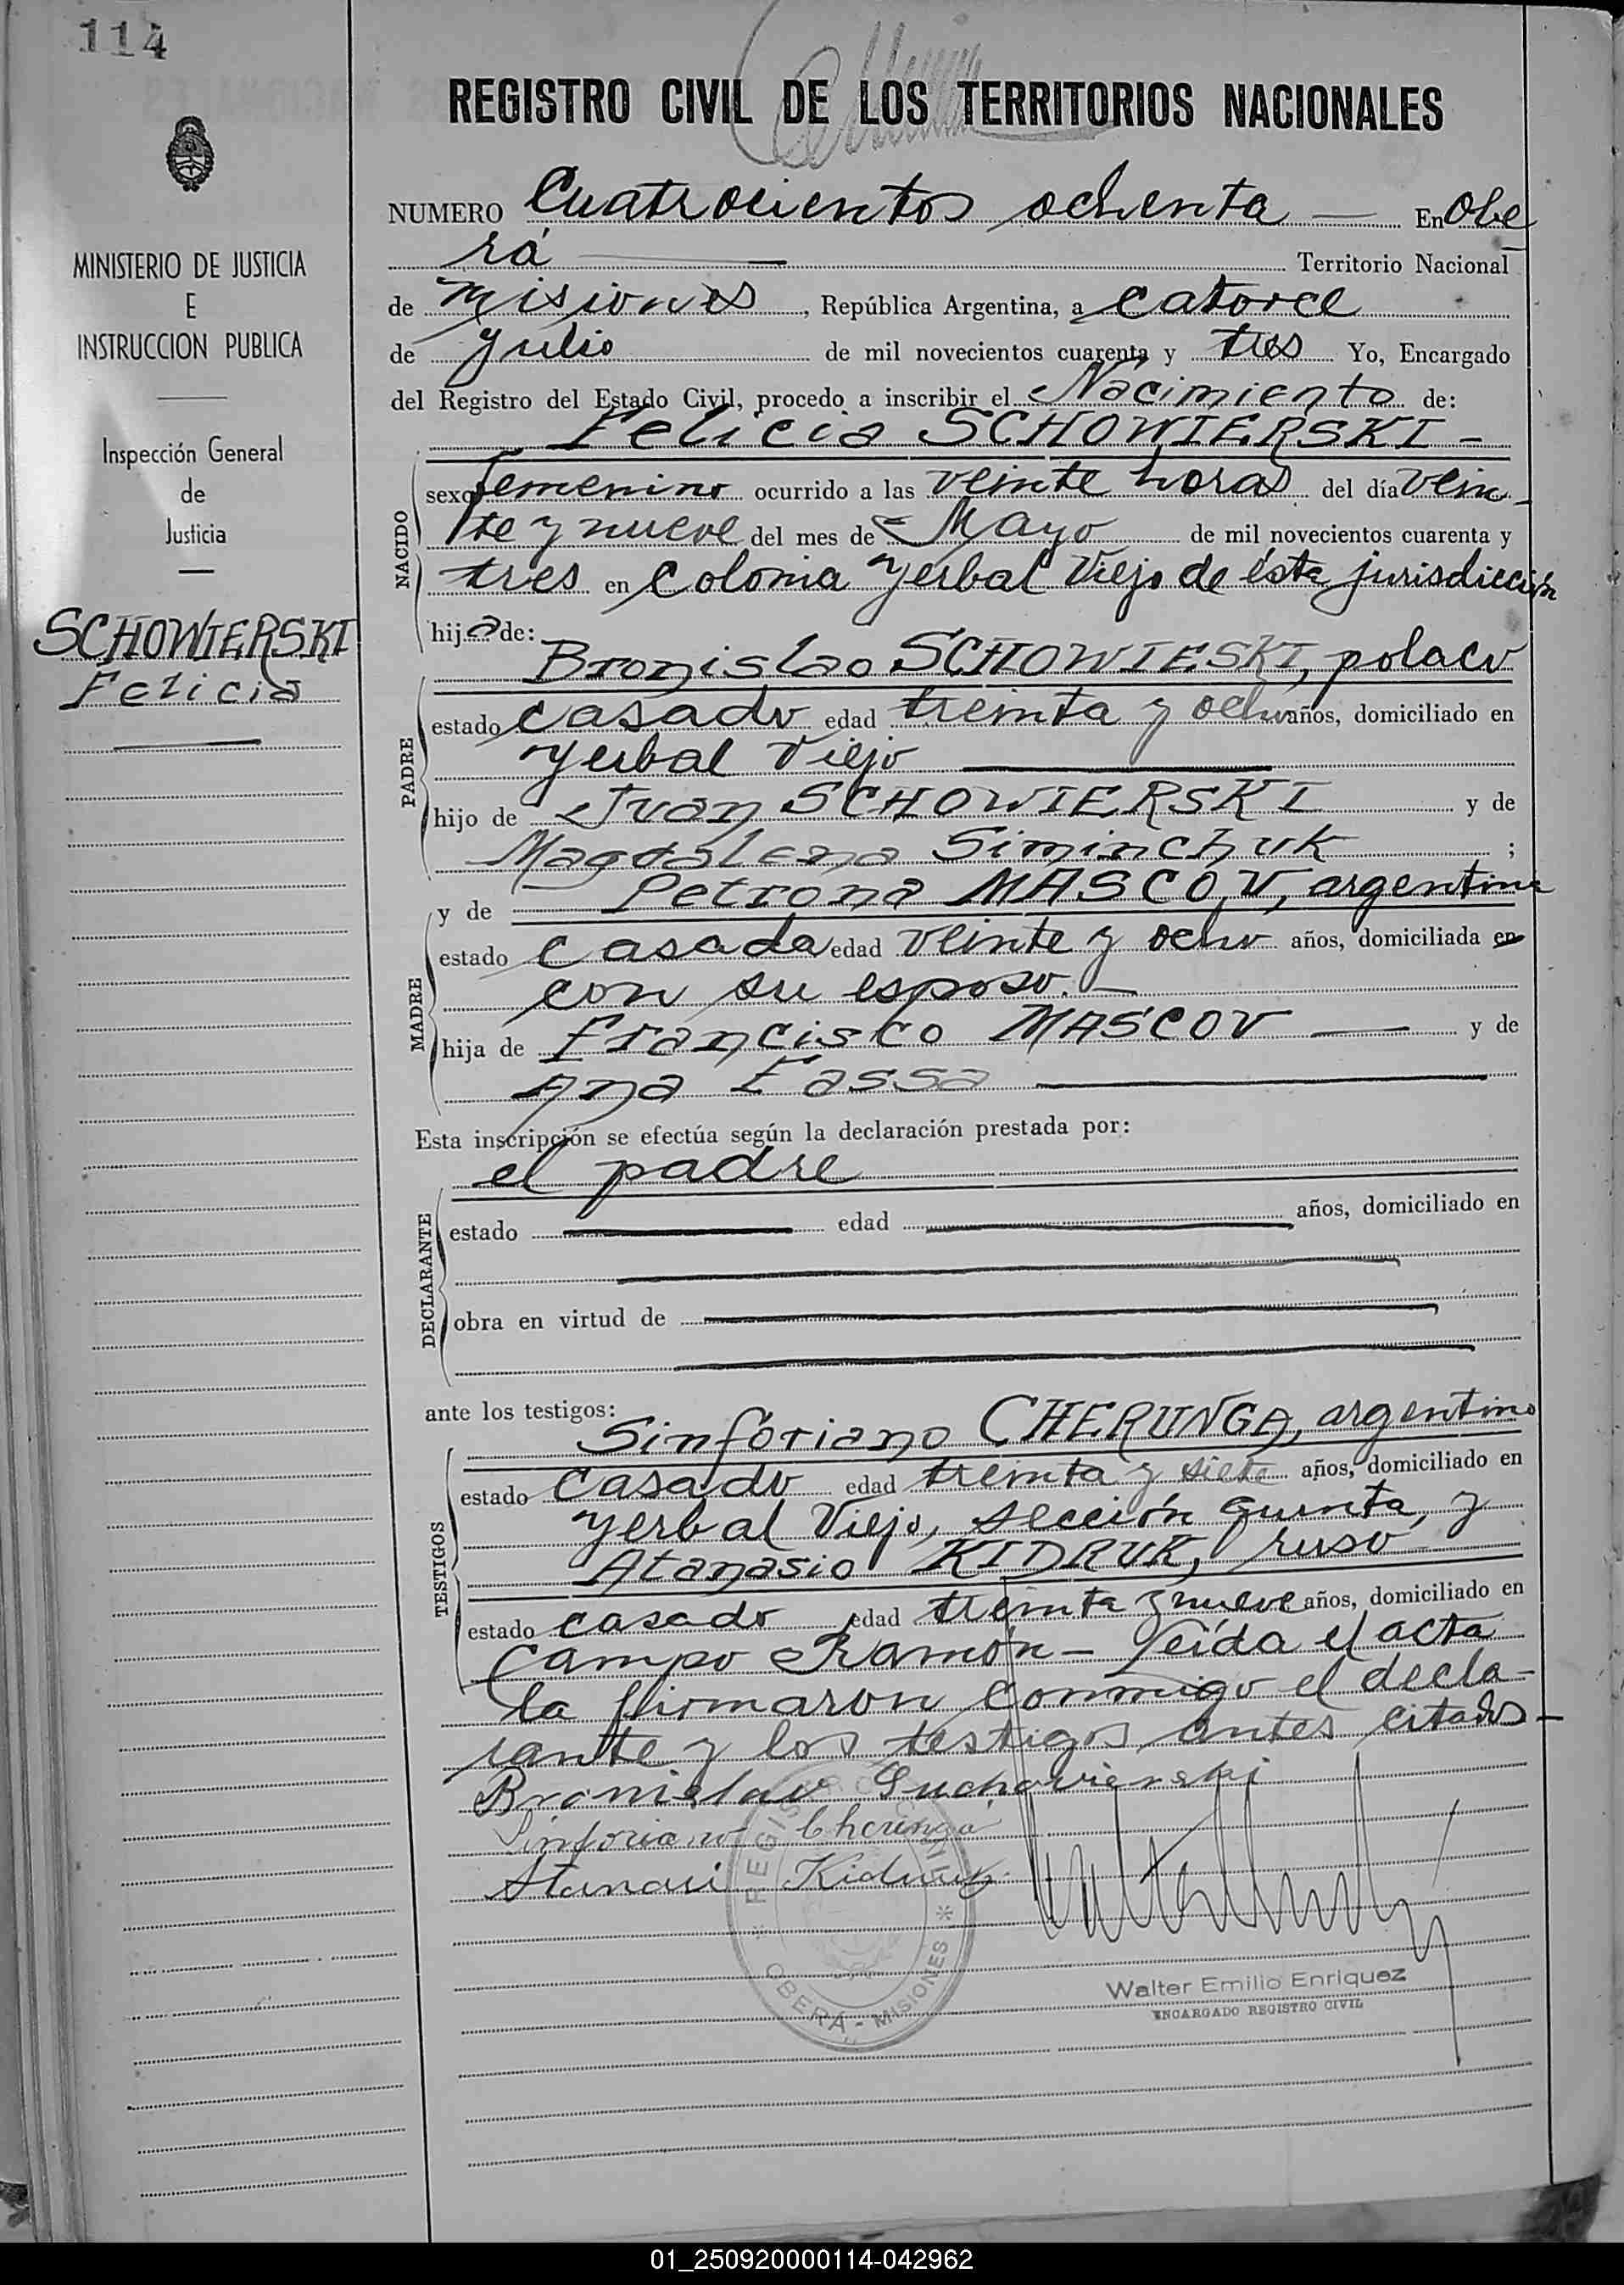 114
REGISTRO CIVIL DE LOS TERRITORIOS NACIONALES
MINISTERIO DE JUSTICIA
E
INSTRUCCION PUBLICA
Inspección General
de
Justicia
SCHOWIERSKI
Felicia
NUMERO Cuatrocientos ochenta — En Obe
rá — Territorio Nacional
de Misiones, República Argentina, a catorce
de Julio de mil novecientos cuarenta y tres Yo, Encargado
del Registro del Estado Civil, procedo a inscribir el Nacimiento de:
Felicia SCHOWIERSKI -
NACIDO
sexo femenino ocurrido a las veinte horas del día vein-
te y nueve del mes de Mayo de mil novecientos cuarenta y
tres en Colonia Yerbal Viejo de ésta jurisdicción
hija de:
Bronislao SCHOWIESKI, polaco
PADRE
estado casado edad treinta y ocho años, domiciliado en
Yerbal Viejo
hijo de Juan SCHOWIERSKI y de
Magdalena Siminchuk ;
y de Petrona MASCOV, argentina
MADRE
estado casada edad veinte y ocho años, domiciliada en
con su esposo. -
hija de Francisco MASCOV — y de
Ana Fassa
Esta inscripción se efectúa según la declaración prestada por:
el padre
DECLARANTE
estado edad años, domiciliado en
obra en virtud de
ante los testigos:
Sinforiano CHERUNGA, argentino
TESTIGOS
estado casado edad treinta y siete años, domiciliado en
Yerbal Viejo, sección quinta, y
Atanasio KIDRUK, ruso
estado casado edad treinta y nueve años, domiciliado en
Campo Ramón - Leída el acta
la firmaron conmigo el decla-
rante y los testigos antes citados -
Bronislav Suchowierski
Sinforiano Cherunga
Atanasi Kidruk
REGISTRO CIVIL
OBERÁ - MISIONES
Walter Emilio Enriquez
ENCARGADO REGISTRO CIVIL
01_250920000114-042962